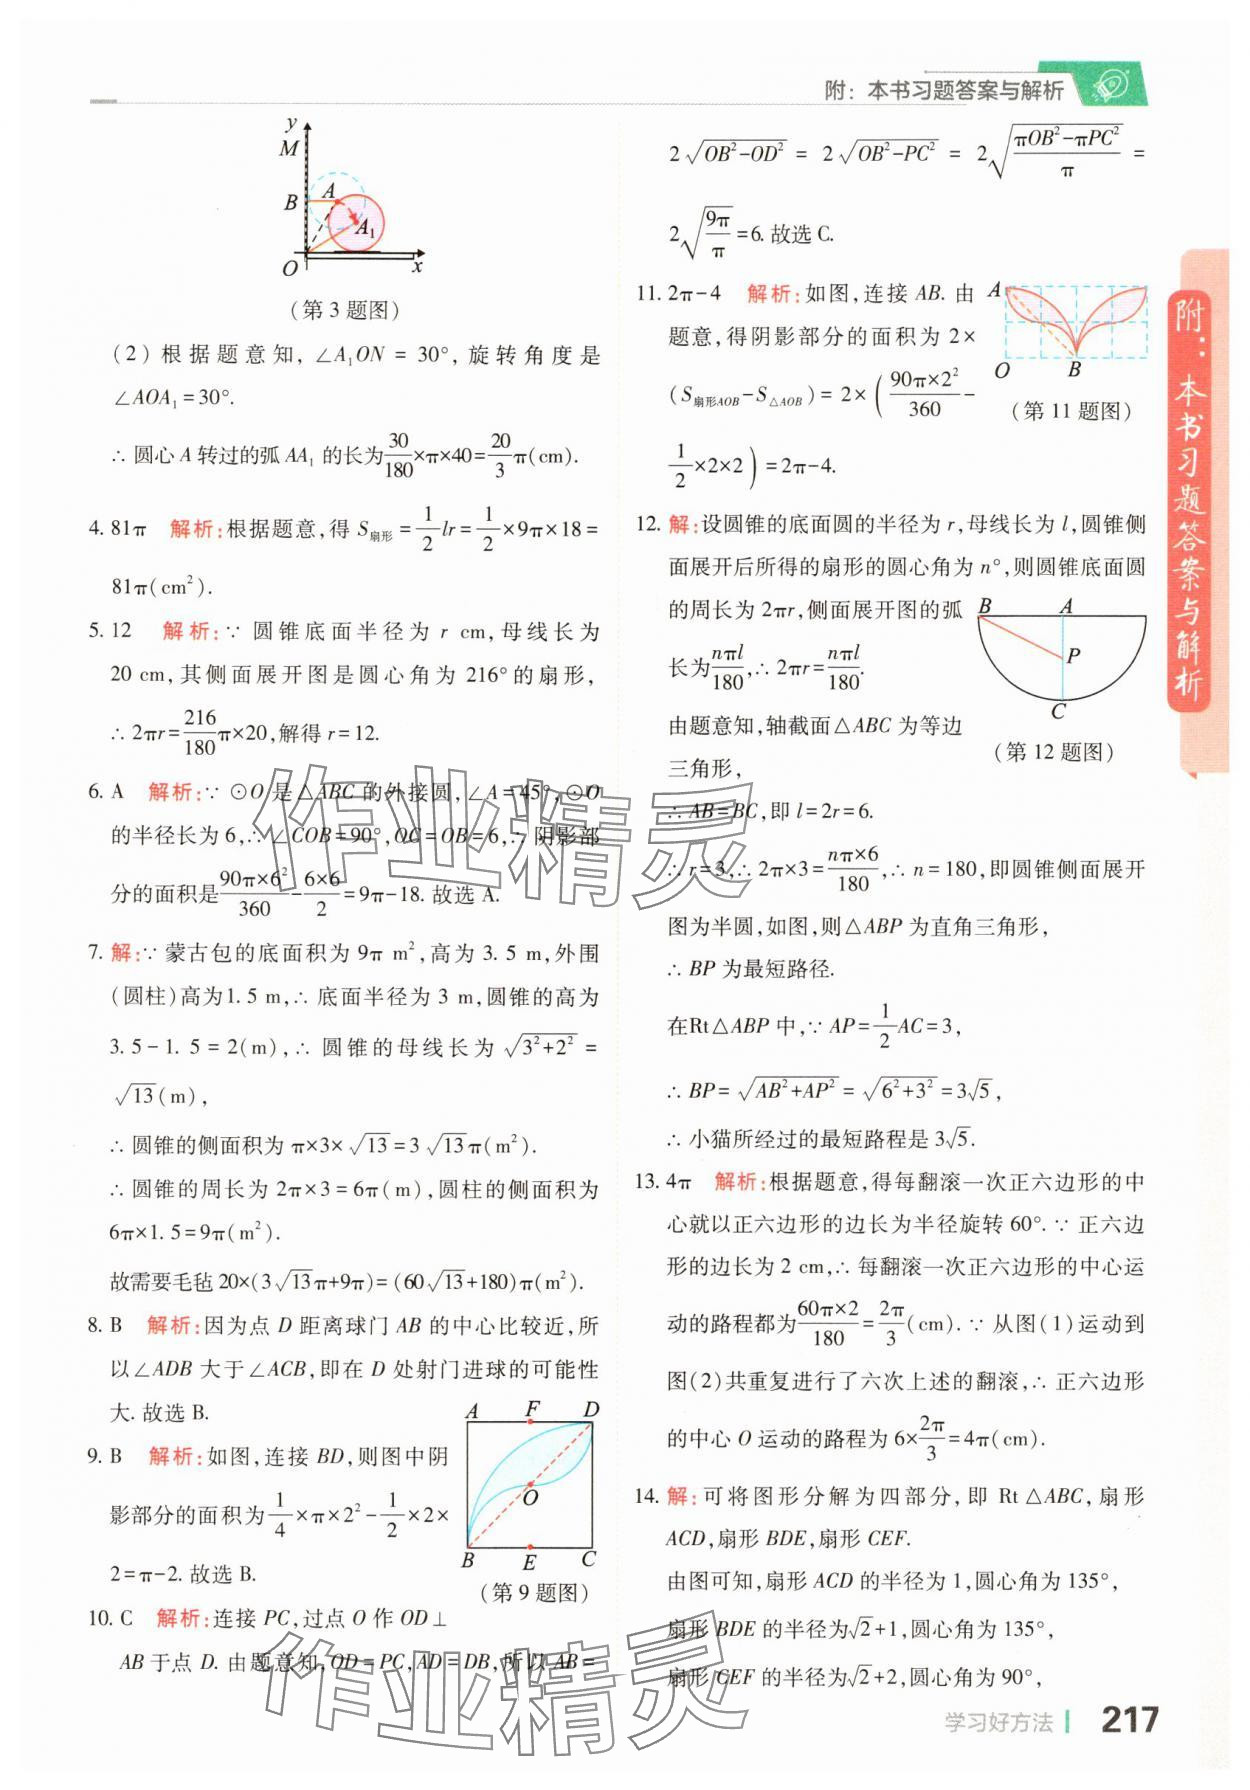 附：本书习题答案与解析
y
M
B
A
A₁
O
x
(第3题图)
(2)根据题意知,∠A₁ON=30°,旋转角度是
∠AOA₁=30°.
∴圆心A转过的弧AA₁的长为30/180×π×40=20/3π(cm).
4. 81π 解析:根据题意,得S扇形=1/2lr=1/2×9π×18=
81π(cm²).
5. 12 解析:∵圆锥底面半径为r cm,母线长为
20 cm,其侧面展开图是圆心角为216°的扇形,
∴2πr=216/180π×20,解得r=12.
6. A 解析:∵⊙O是△ABC的外接圆,∠A=45°,⊙O
的半径长为6,∴∠COB=90°,OC=OB=6,∴阴影部
分的面积是90π×6²/360-6×6/2=9π-18.故选A.
7. 解:∵蒙古包的底面积为9π m²,高为3.5 m,外围
(圆柱)高为1.5 m,∴底面半径为3 m,圆锥的高为
3.5-1.5=2(m),∴圆锥的母线长为√(3²+2²)=
√13(m),
∴圆锥的侧面积为π×3×√13=3√13π(m²).
∴圆锥的周长为2π×3=6π(m),圆柱的侧面积为
6π×1.5=9π(m²).
故需要毛毡20×(3√13π+9π)=(60√13+180)π(m²).
8. B 解析:因为点D距离球门AB的中心比较近,所
以∠ADB大于∠ACB,即在D处射门进球的可能性
大.故选B.
9. B 解析:如图,连接BD,则图中阴
影部分的面积为1/4×π×2²-1/2×2×
2=π-2.故选B.
A F D
O
B E C
(第9题图)
10. C 解析:连接PC,过点O作OD⊥
AB于点D.由题意知,OD=PC,AD=DB,所以AB=
2√(OB²-OD²)=2√(OB²-PC²)=2√((πOB²-πPC²)/π)=
2√(9π/π)=6.故选C.
11. 2π-4 解析:如图,连接AB.由
题意,得阴影部分的面积为2×
(S扇形AOB-S△AOB)=2×(90π×2²/360-
1/2×2×2)=2π-4.
A
O B
(第11题图)
12. 解:设圆锥的底面圆的半径为r,母线长为l,圆锥侧
面展开后所得的扇形的圆心角为n°,则圆锥底面圆
的周长为2πr,侧面展开图的弧
长为nπl/180,∴2πr=nπl/180.
由题意知,轴截面△ABC为等边
三角形,
B A
P
C
(第12题图)
∴AB=BC,即l=2r=6.
∴r=3,∴2π×3=nπ×6/180,∴n=180,即圆锥侧面展开
图为半圆,如图,则△ABP为直角三角形,
∴BP为最短路径.
在Rt△ABP中,∵AP=1/2AC=3,
∴BP=√(AB²+AP²)=√(6²+3²)=3√5,
∴小猫所经过的最短路程是3√5.
13. 4π 解析:根据题意,得每翻滚一次正六边形的中
心就以正六边形的边长为半径旋转60°.∵正六边
形的边长为2 cm,∴每翻滚一次正六边形的中心运
动的路程都为60π×2/180=2π/3(cm).∵从图(1)运动到
图(2)共重复进行了六次上述的翻滚,∴正六边形
的中心O运动的路程为6×2π/3=4π(cm).
14. 解:可将图形分解为四部分,即Rt△ABC,扇形
ACD,扇形BDE,扇形CEF.
由图可知,扇形ACD的半径为1,圆心角为135°,
扇形BDE的半径为√2+1,圆心角为135°,
扇形CEF的半径为√2+2,圆心角为90°,
附：本书习题答案与解析
作业精灵
作业精灵
学习好方法 217